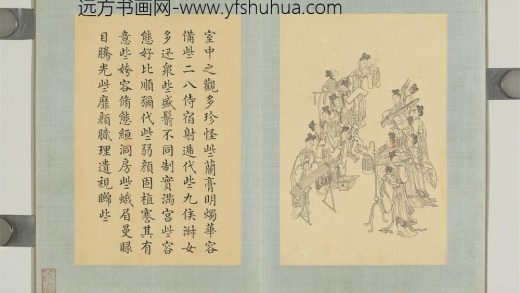 远方书画网-www.yfshuhua.com
室中之觀多珍怪些蘭膏明燭華容
備些二八侍宿射遞代些九侯淑女
多迅衆些盛鬋不同制實滿宮些容
態好比順彌代些弱顏固植謇其有
意些姱容脩態絚洞房些蛾眉曼睩
目騰光些靡顏膩理遺視矊些